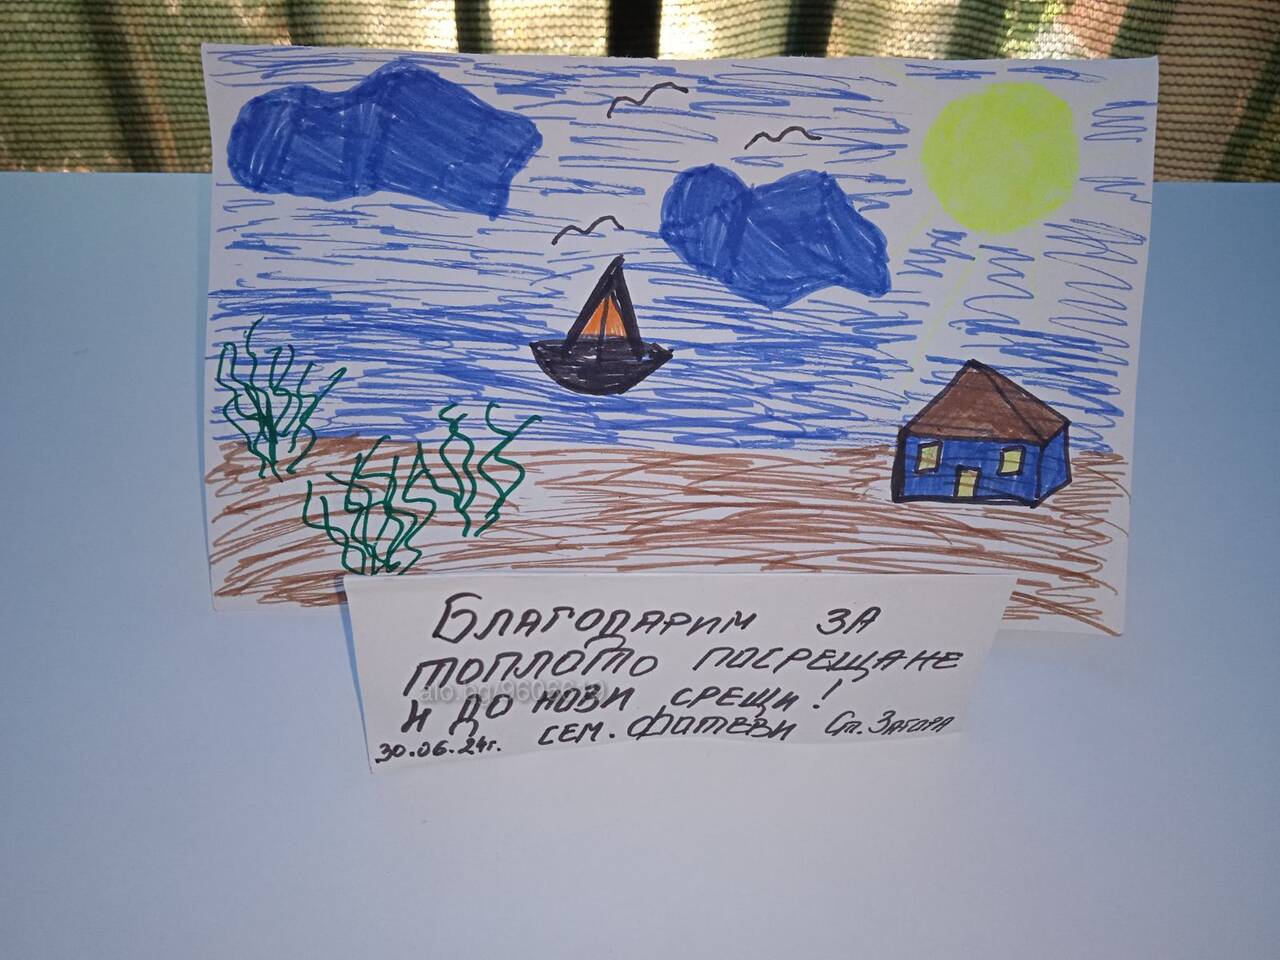 Благодарим за
топлото посрещане
и до нови срещи!
30.06.24г. сем. Фотеви Ст. Загора